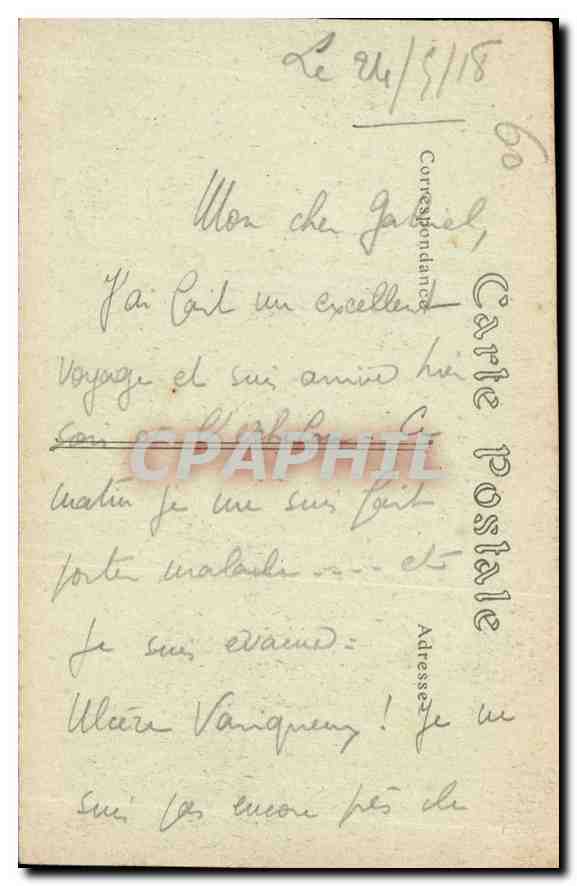 Le 24/5/18
60
Mon cher Gabriel,
J'ai fait un excellent
voyage et suis arrivé hier
soir à
matin je me suis fait
porter malade .... et
je suis évacué :
Ulcère Variqueux ! Je ne
suis pas encore près de
Correspondance
Adresse
Carte Postale
CPAPHIL